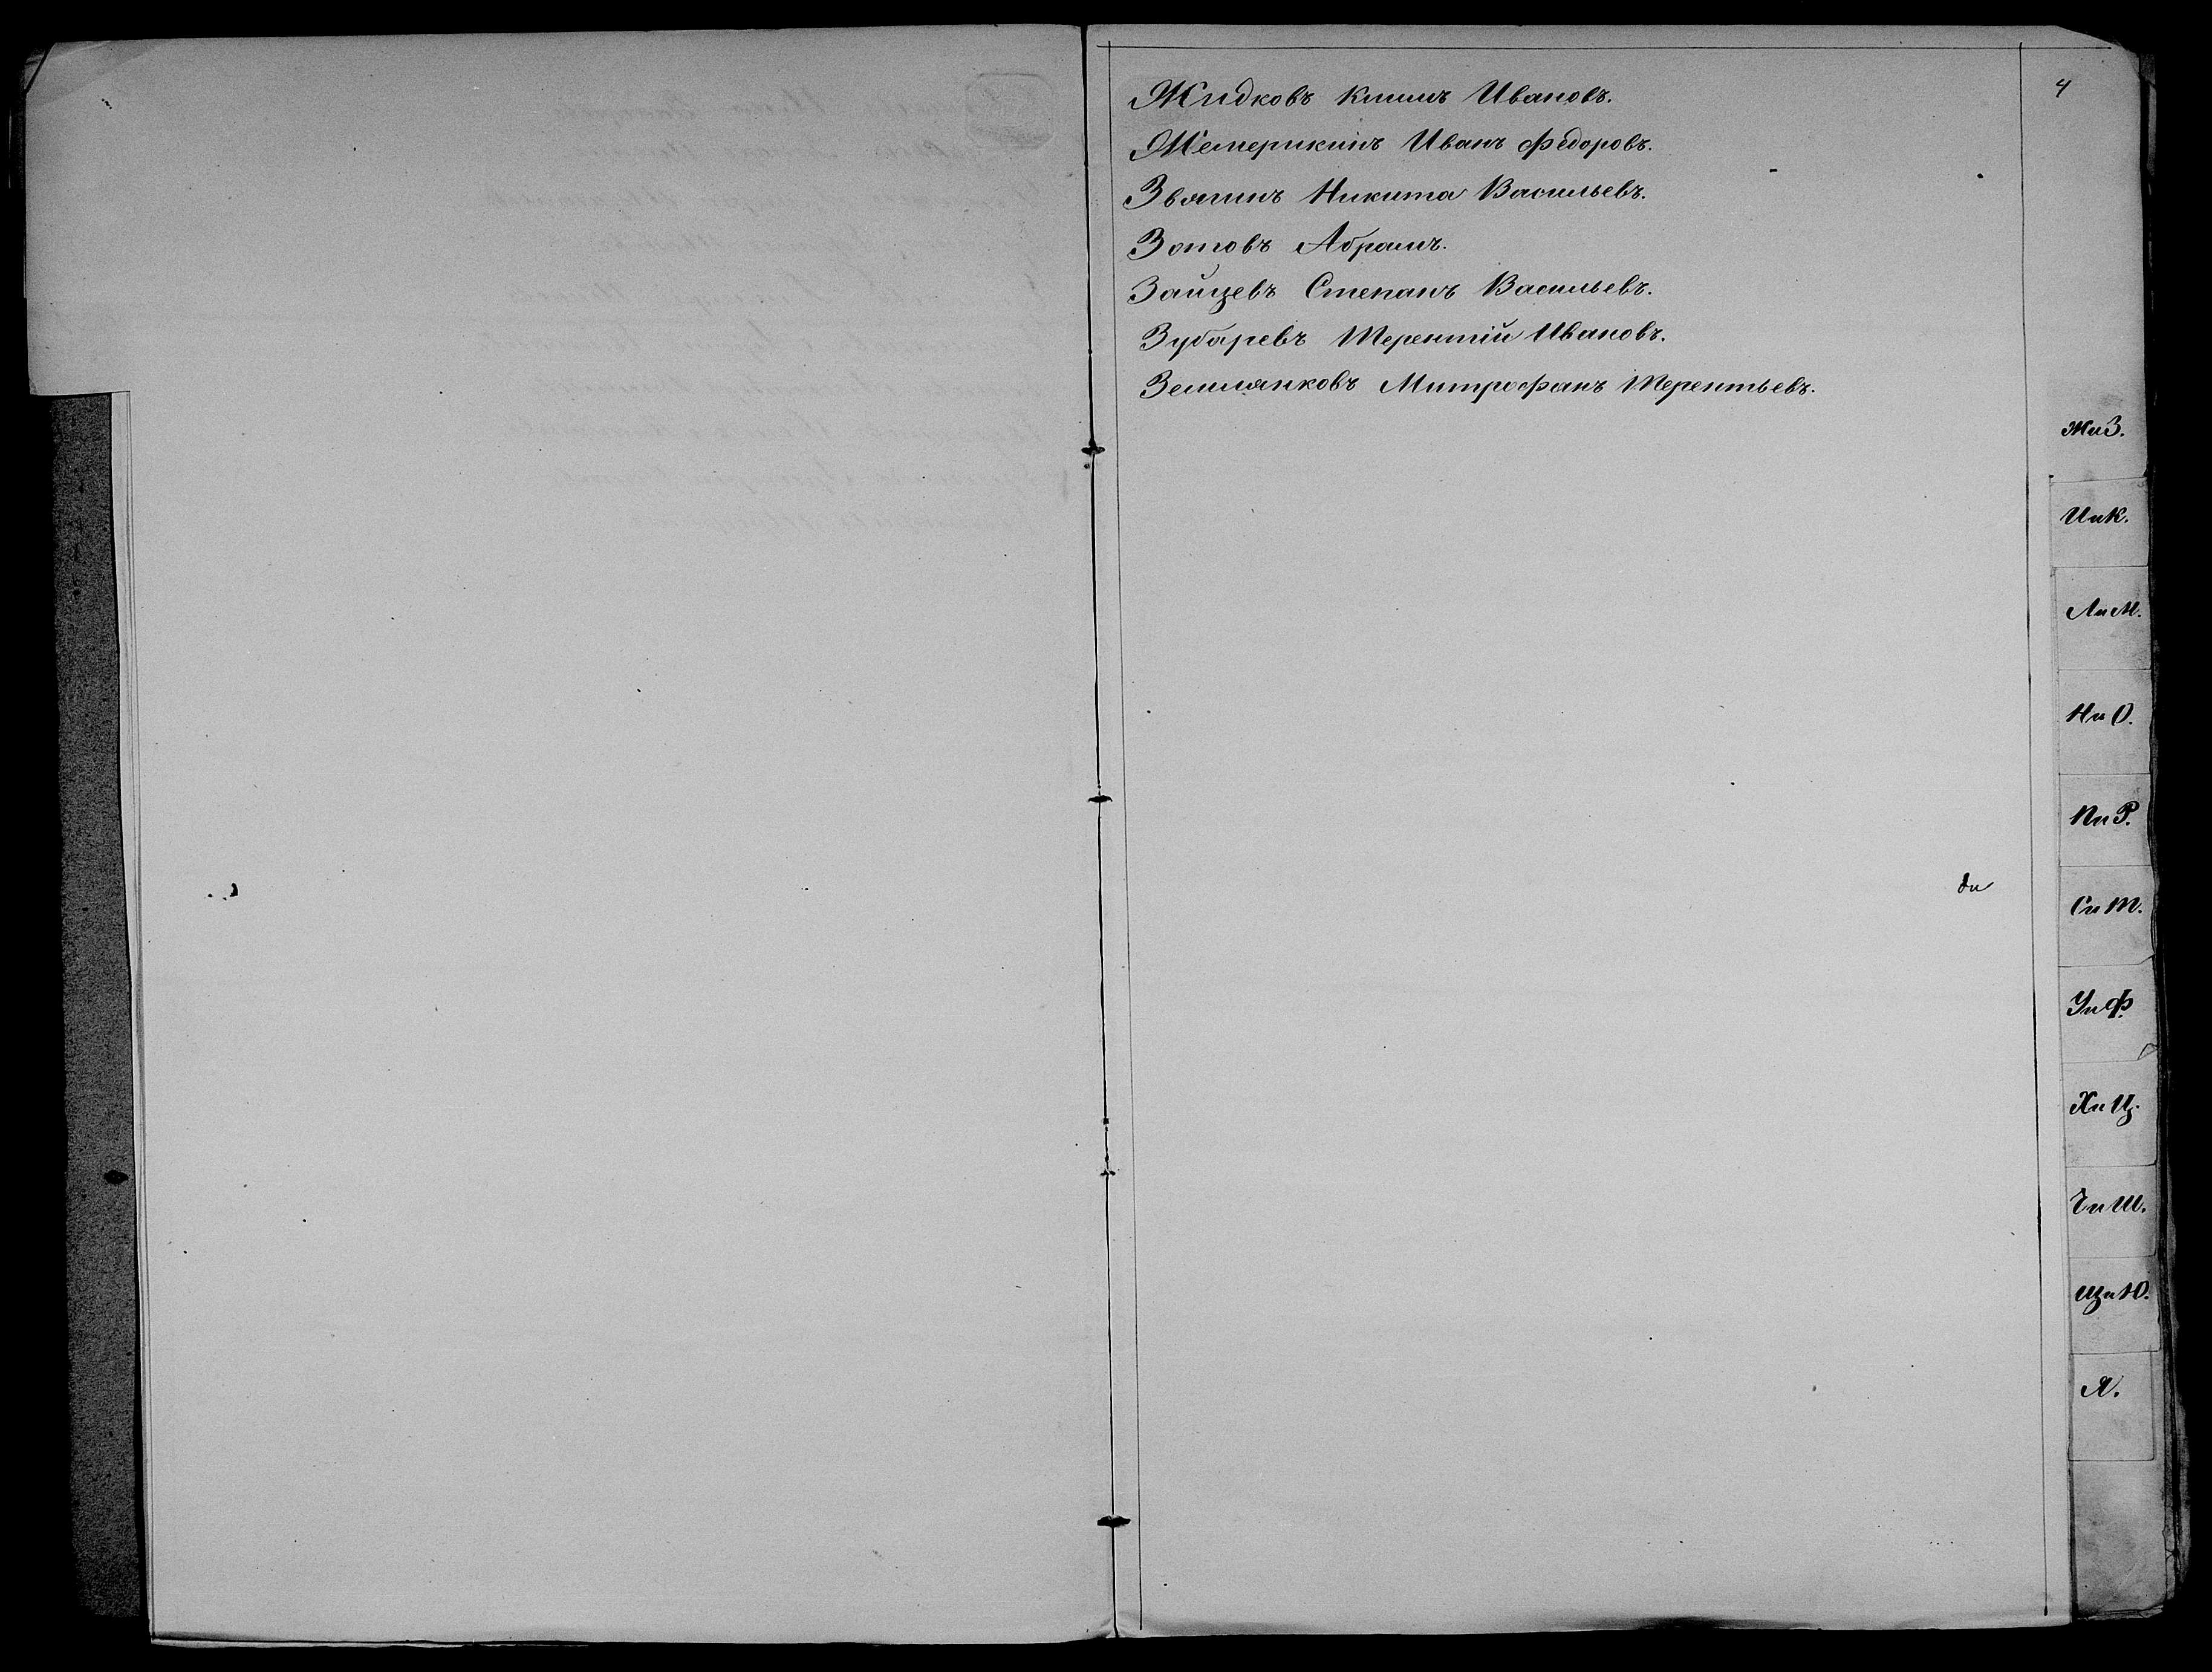 4
Жидковъ Климъ Ивановъ.
Жетерикинъ Иванъ Федоровъ.
Звягинъ Никита Васильевъ.
Зотовъ Абрамъ.
Зайцевъ Степанъ Васильевъ.
Зубаревъ Терентій Ивановъ.
Землянковъ Митрофанъ Терентьевъ.
Ж и З.
И и К.
Л и М.
Н и О.
П и Р.
С и Т.
У и Ф.
Х и Ц.
Ч и Ш.
Щ и Ю.
Я.